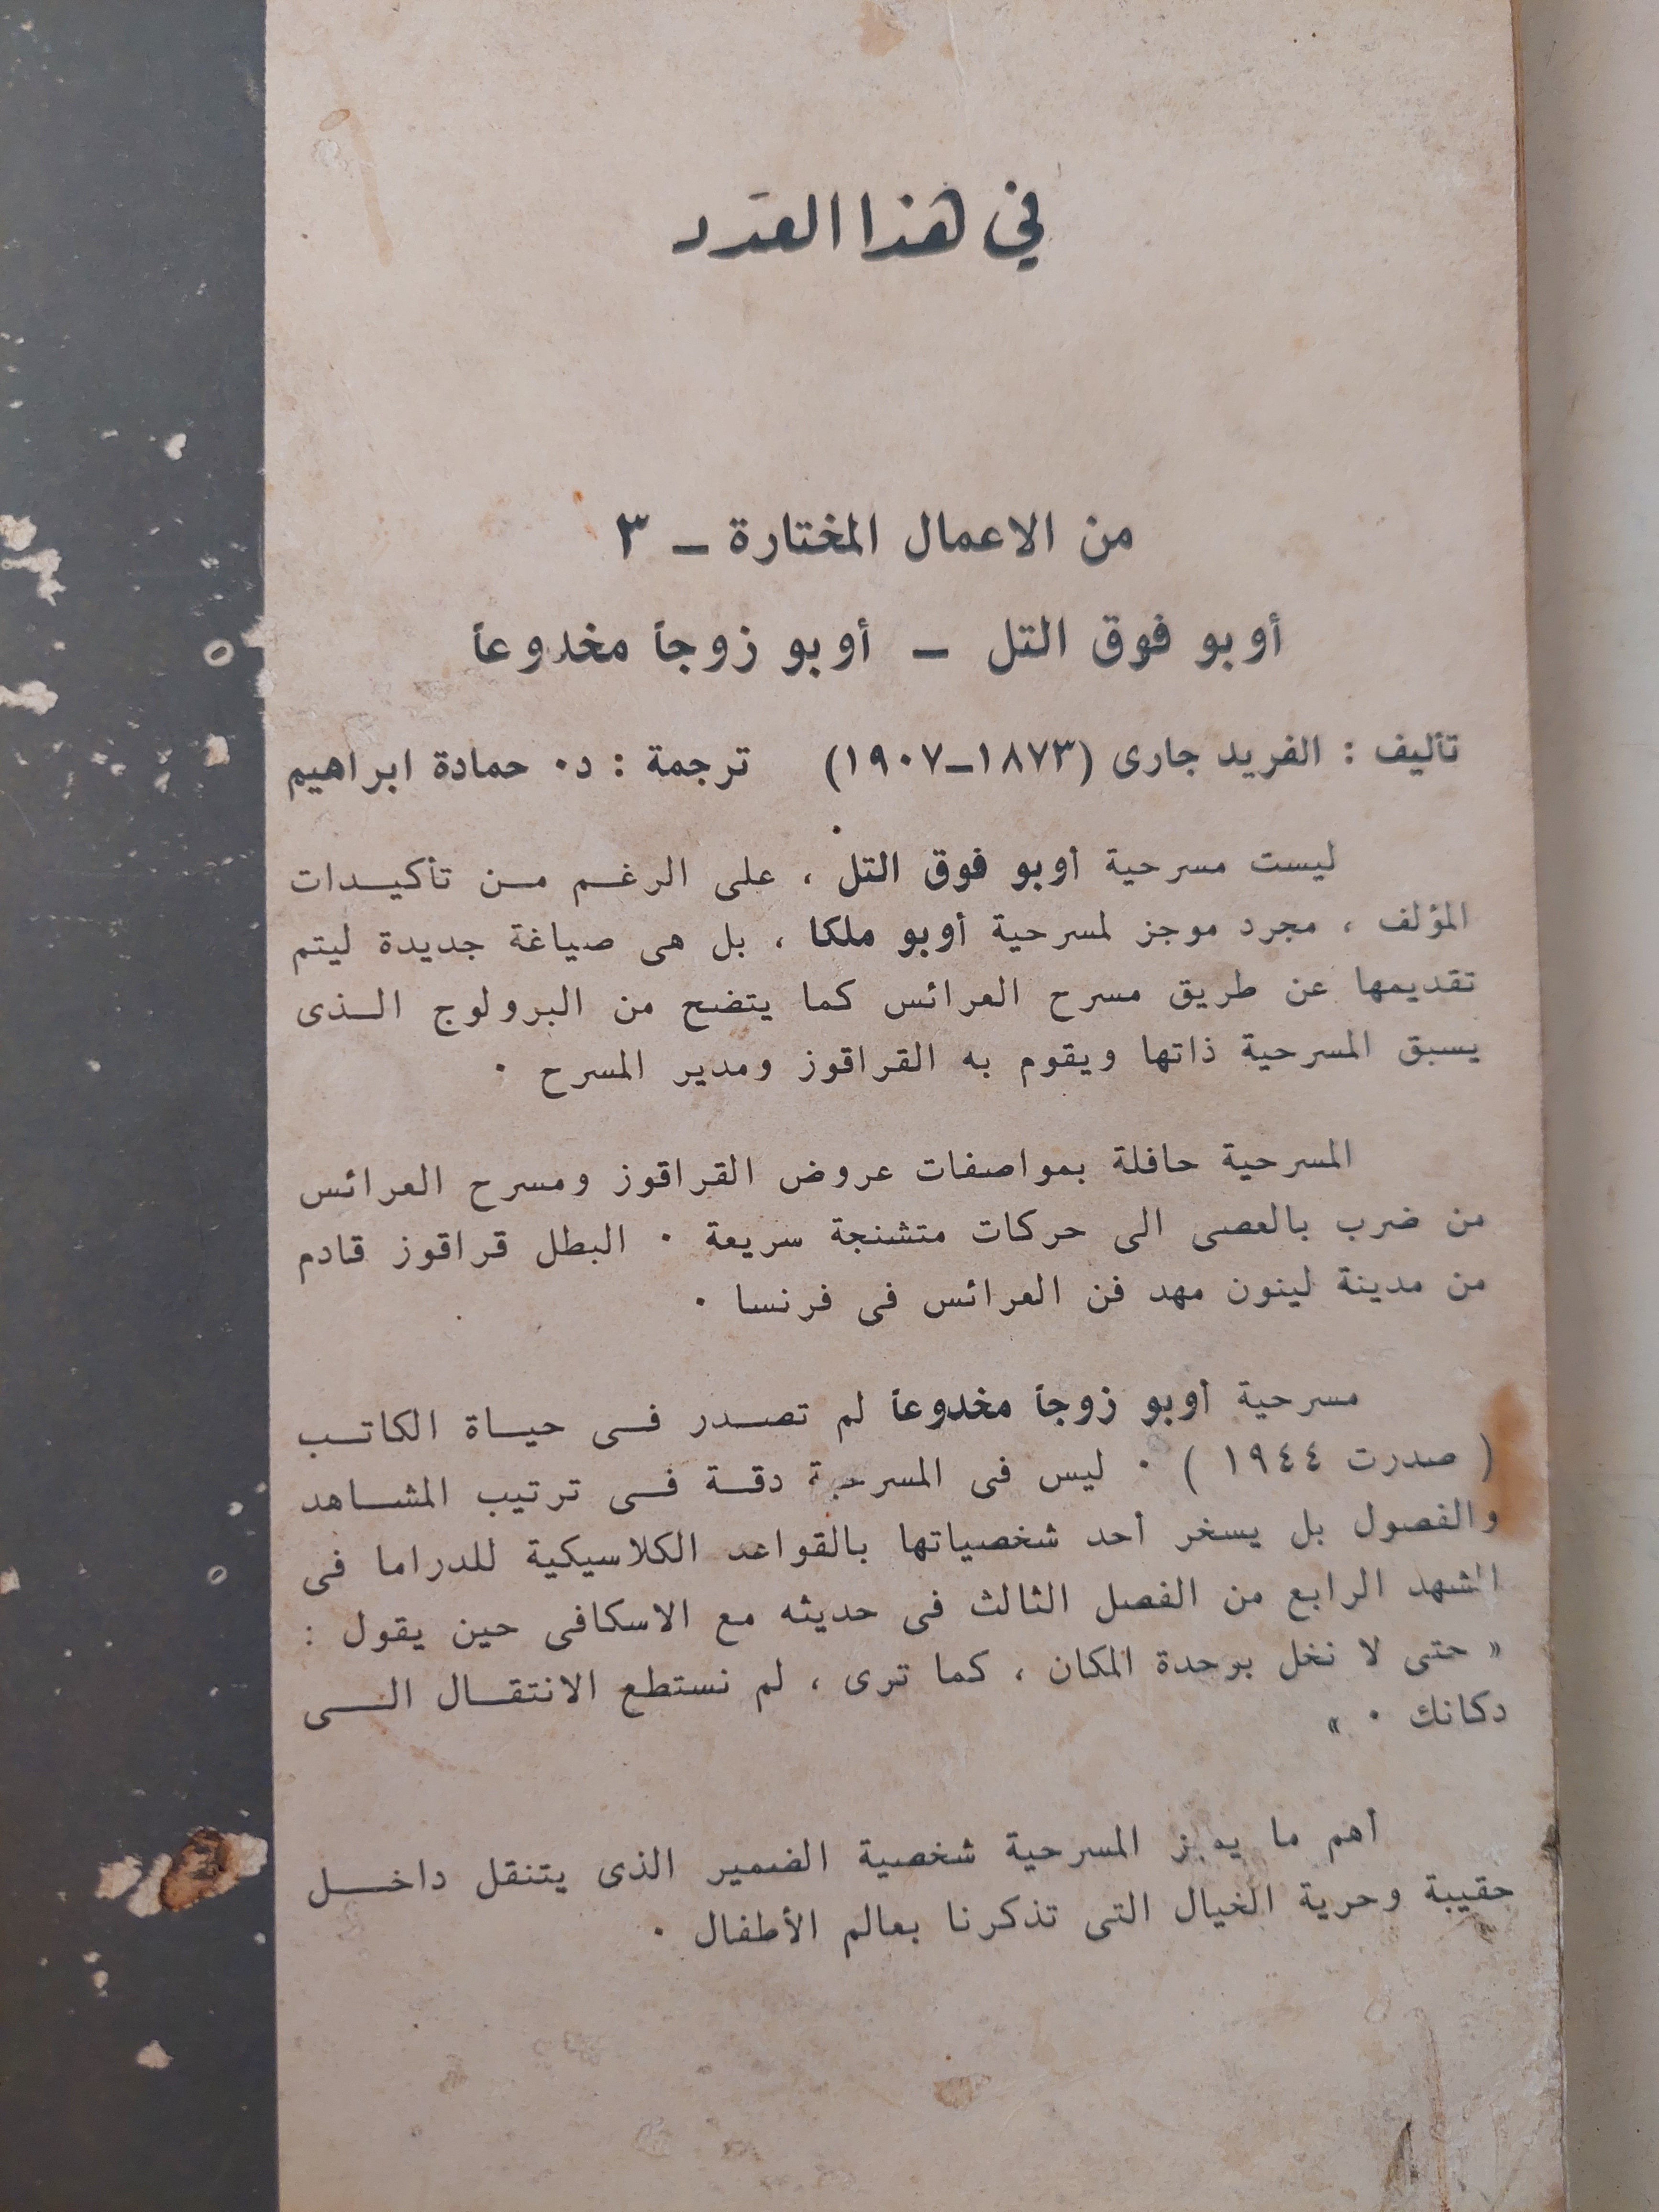 في هذا العدد
من الاعمال المختارة ــ ٣
أوبو فوق التل ــ أوبو زوجاً مخدوعاً
تأليف : الفريد جارى (١٨٧٣ــ١٩٠٧) ترجمة : د٠ حمادة ابراهيم
ليست مسرحية أوبو فوق التل ، على الرغم من تأكيدات
المؤلف ، مجرد موجز لمسرحية أوبو ملكا ، بل هى صياغة جديدة ليتم
تقديمها عن طريق مسرح العرائس كما يتضح من البرولوج الذى
يسبق المسرحية ذاتها ويقوم به القراقوز ومدير المسرح ٠
المسرحية حافلة بمواصفات عروض القراقوز ومسرح العرائس
من ضرب بالعصى الى حركات متشنجة سريعة ٠ البطل قراقوز قادم
من مدينة لينون مهد فن العرائس فى فرنسا ٠
مسرحية أوبو زوجاً مخدوعاً لم تصدر فى حياة الكاتب
( صدرت ١٩٤٤ ) ٠ ليس فى المسرحية دقة فى ترتيب المشاهد
والفصول بل يسخر أحد شخصياتها بالقواعد الكلاسيكية للدراما فى
الشهد الرابع من الفصل الثالث فى حديثه مع الاسكافى حين يقول :
« حتى لا نخل بوحدة المكان ، كما ترى ، لم نستطع الانتقال الى
دكانك ٠ »
أهم ما يميز المسرحية شخصية الضمير الذى يتنقل داخل
حقيبة وحرية الخيال التى تذكرنا بعالم الأطفال ٠